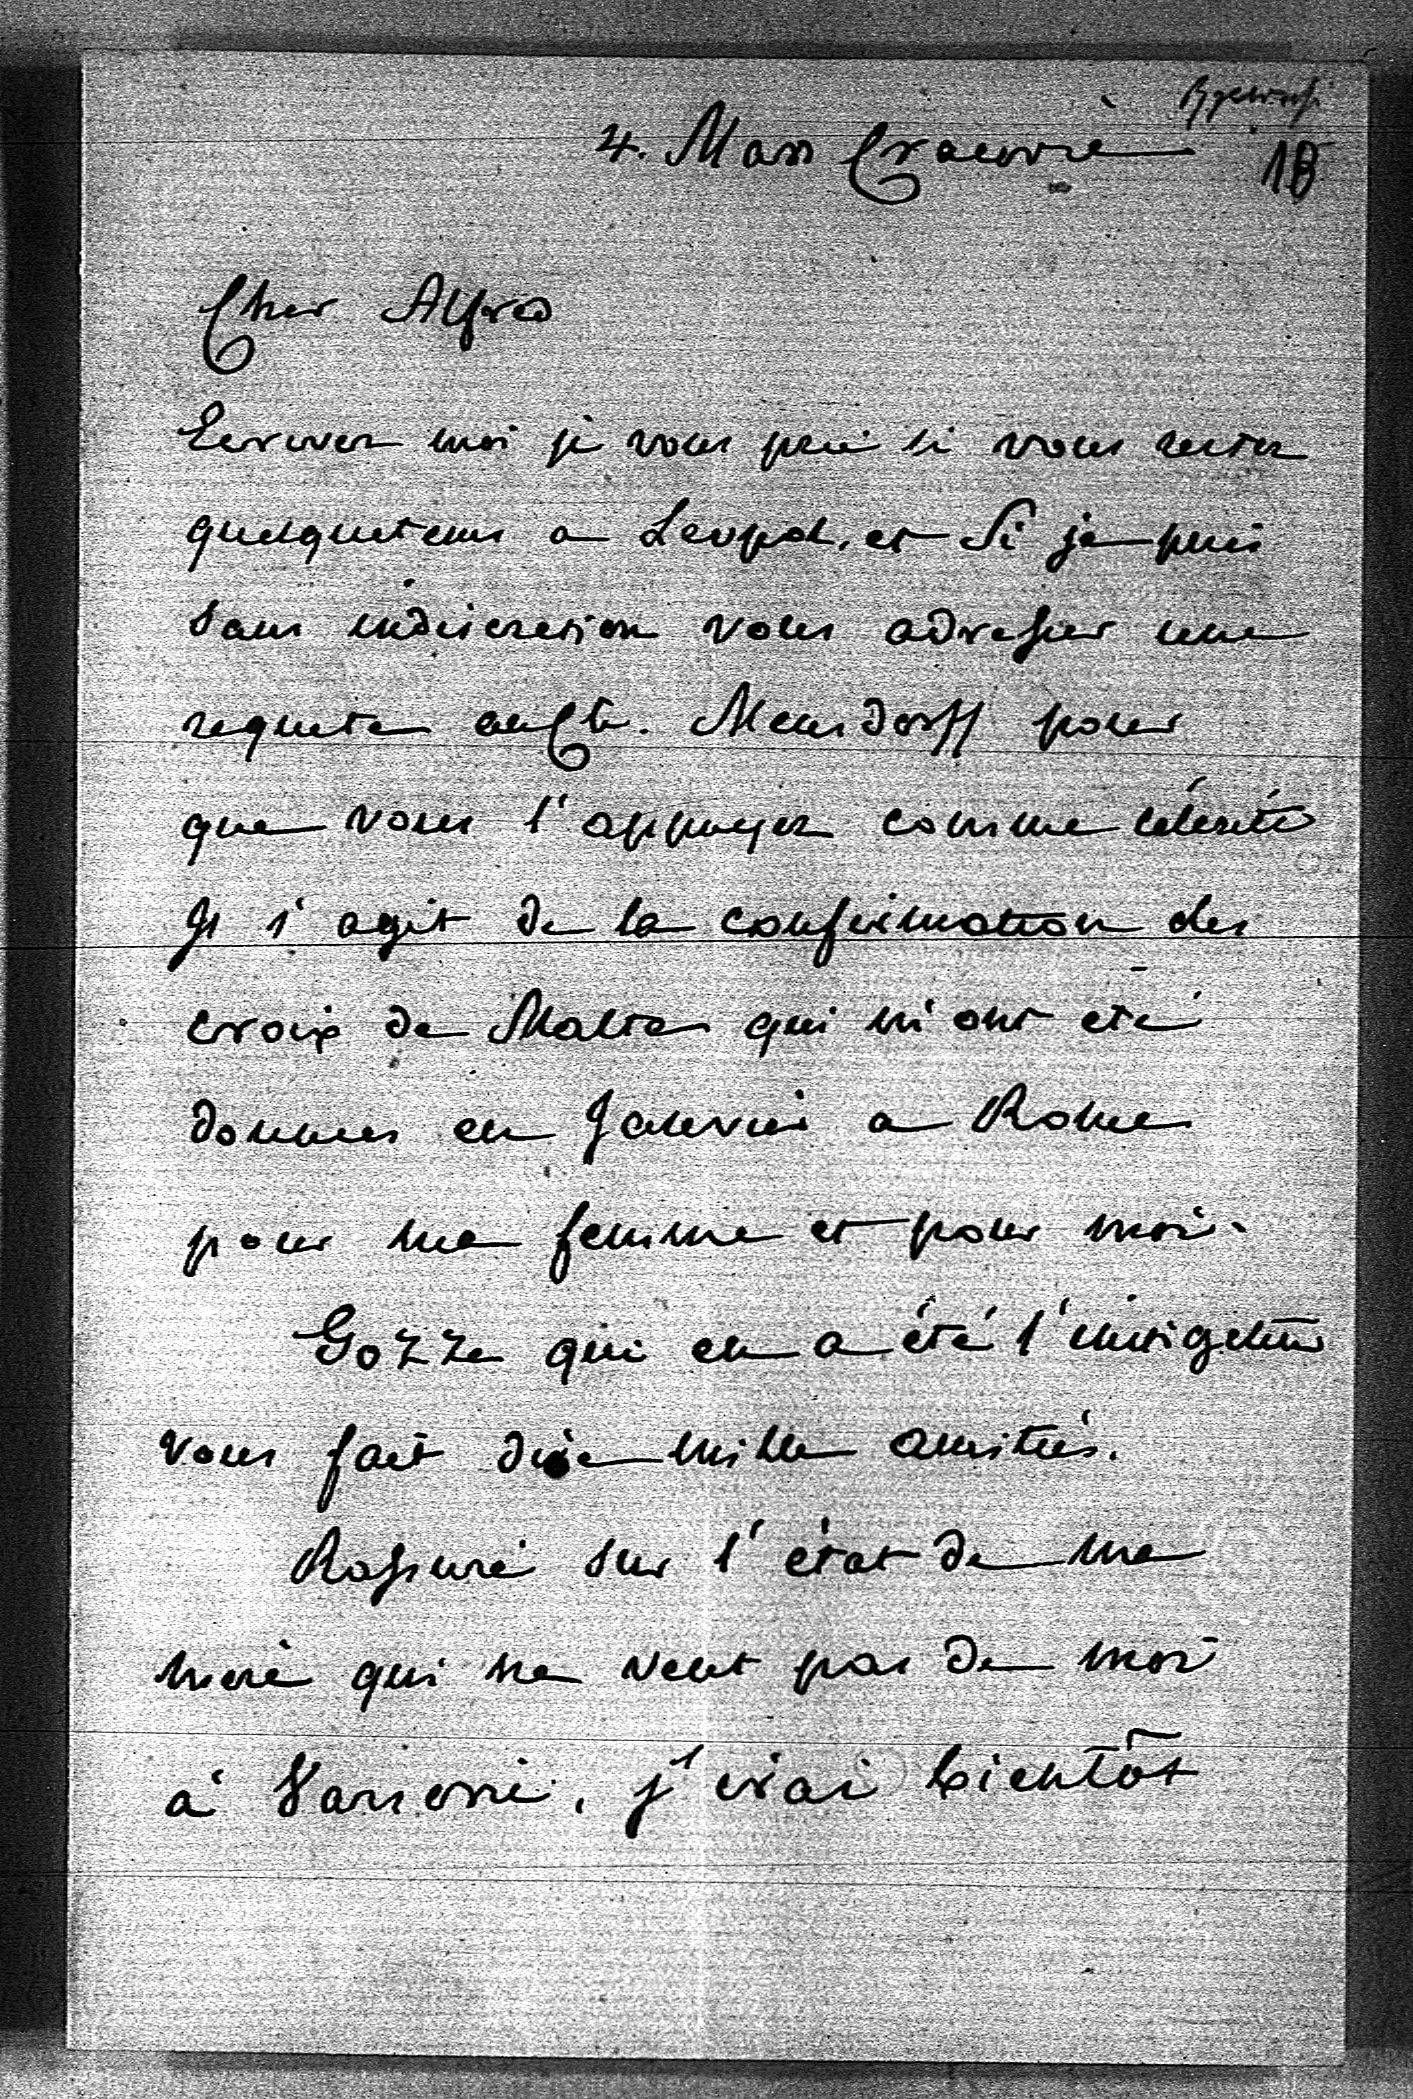 4. Mars Cracovie
18
Cher Alfred
Ecrivez moi je vous prie si vous restez
quelquetems a Leopol, et si je puis
sans indiscretion vous adresser une
requete au Ct. Mensdorff pour
que vous l'appuyez comme célérité
Il s'agit de la confirmation des
croix de Malte qui m'ont été
données en Janvier a Rome
pour ma femme et pour moi.
Gozze qui en a été l'instigateur
vous fait dire mille amitiés.
Rassuré sur l'état de ma
mère qui ne veut pas de moi
à Varsovie, j'irai bientôt